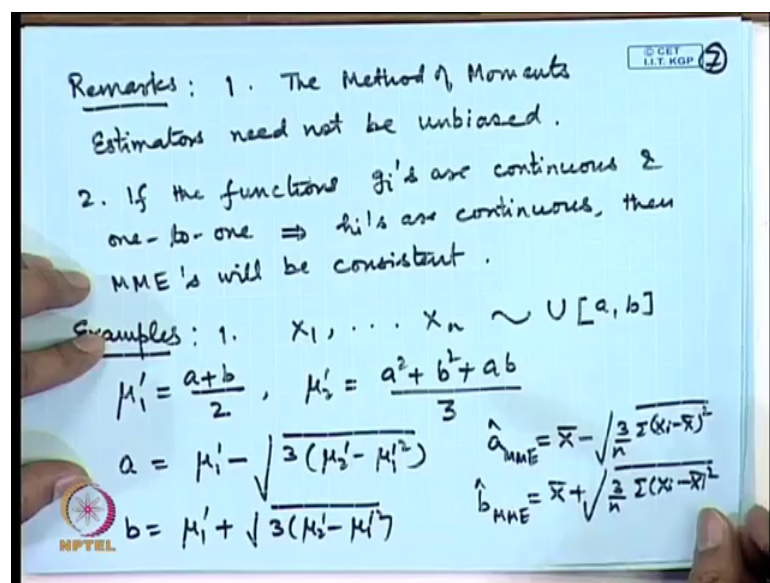 © CET
I.I.T. KGP
7
Remarks : 1. The Method of Moments
Estimators need not be unbiased.
2. If the functions gi's are continuous &
one-to-one ⇒ hi's are continuous, then
MME's will be consistent.
Examples : 1. X₁, ... Xₙ ~ U[a, b]
μ₁' = (a+b)/2 , μ₂' = (a² + b² + ab)/3
a = μ₁' - √(3(μ₂' - μ₁'²))
â_MME = x̄ - √(3/n Σ(xi-x̄)²)
b = μ₁' + √(3(μ₂' - μ₁'²))
b̂_MME = x̄ + √(3/n Σ(xi-x̄)²)
NPTEL